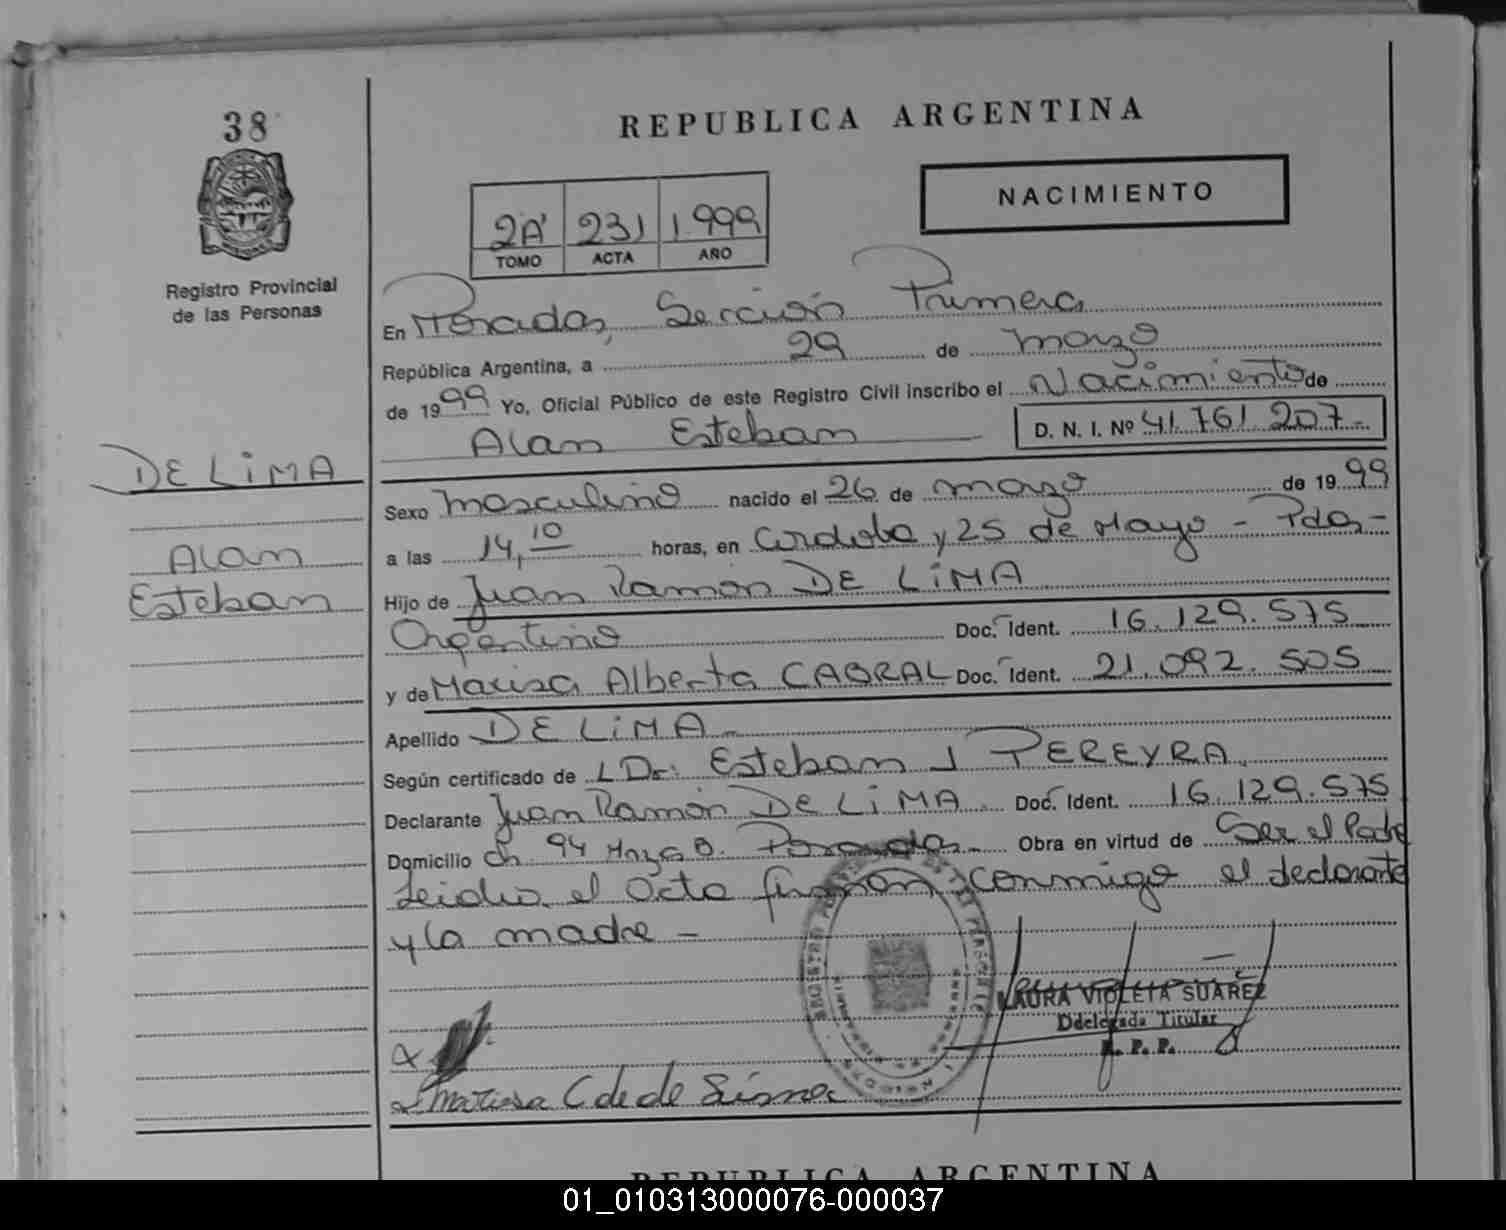 38
REPUBLICA ARGENTINA
NACIMIENTO
2A' 231 1.999
TOMO ACTA AÑO
Registro Provincial
de las Personas
En Posadas, Sección Primera
República Argentina, a 29 de marzo
de 1999 Yo, Oficial Público de este Registro Civil inscribo el Nacimiento de
Alan Esteban D. N. I. Nº 41.761.207-
DE LiMA
Alan
Esteban
Sexo masculino nacido el 26 de marzo de 1999
a las 14,10 horas, en Cordoba y 25 de Mayo - Pdas-
Hijo de Juan Ramón DE LiMA
Argentino Doc. Ident. 16.129.575
y de Marisa Alberta CABRAL Doc. Ident. 21.092.505
Apellido DE LiMA
Según certificado de Dr: Esteban J PEREYRA
Declarante Juan Ramón DE LiMA Doc. Ident. 16.129.575
Domicilio Ch 94 Mnza B. Posadas Obra en virtud de Ser el Padre
Leida el Acta firman conmigo el declarante
y la madre -
LAURA VIOLETA SUAREZ
Ddelegada Titular
R. P. P.
Marisa C de de Lima
REPUBLICA ARGENTINA
01_010313000076-000037